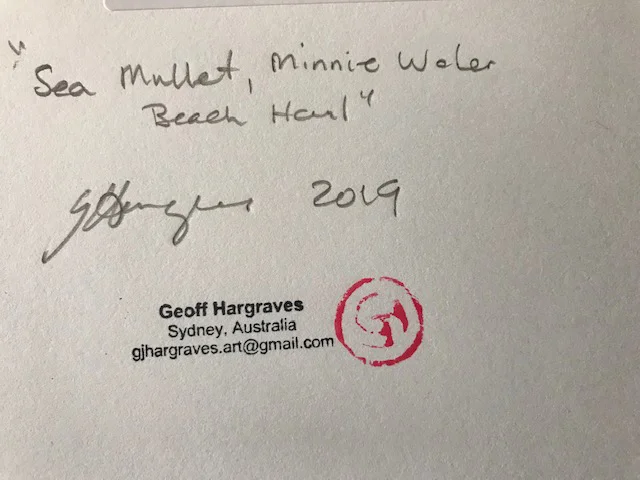 "Sea Mullet, Minnie Water
Beach Haul"
GHargraves 2019
Geoff Hargraves
Sydney, Australia
gjhargraves.art@gmail.com